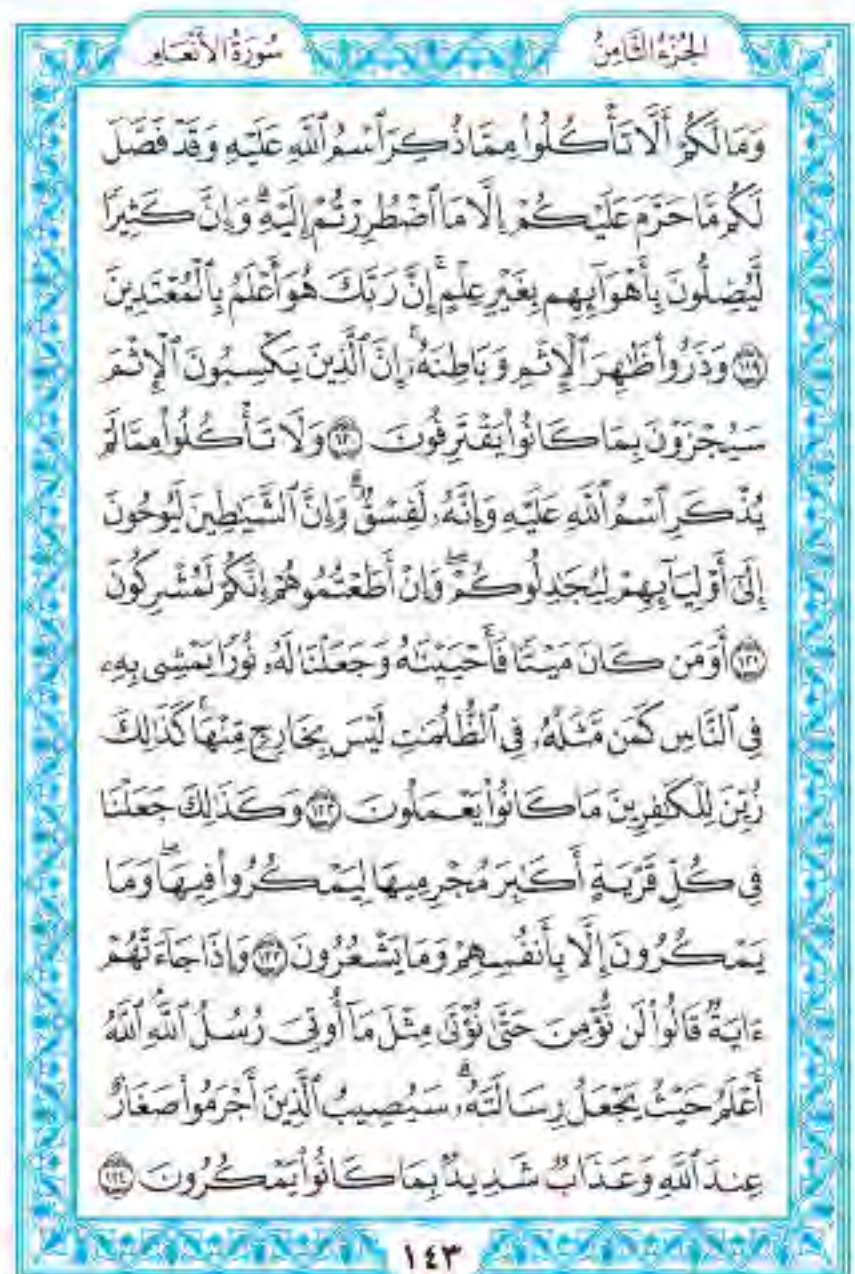 سُورَةُ الأَنْعَامِ
الجُزْءُ الثَّامِنُ
وَمَا لَكُمْ أَلَّا تَأْكُلُوا۟ مِمَّا ذُكِرَ ٱسْمُ ٱللَّهِ عَلَيْهِ وَقَدْ فَصَّلَ
لَكُم مَّا حَرَّمَ عَلَيْكُمْ إِلَّا مَا ٱضْطُرِرْتُمْ إِلَيْهِ ۗ وَإِنَّ كَثِيرًا
لَّيُضِلُّونَ بِأَهْوَآئِهِم بِغَيْرِ عِلْمٍ ۗ إِنَّ رَبَّكَ هُوَ أَعْلَمُ بِٱلْمُعْتَدِينَ
﴿١١٩﴾ وَذَرُوا۟ ظَٰهِرَ ٱلْإِثْمِ وَبَاطِنَهُۥٓ ۚ إِنَّ ٱلَّذِينَ يَكْسِبُونَ ٱلْإِثْمَ
سَيُجْزَوْنَ بِمَا كَانُوا۟ يَقْتَرِفُونَ ﴿١٢٠﴾ وَلَا تَأْكُلُوا۟ مِمَّا لَمْ
يُذْكَرِ ٱسْمُ ٱللَّهِ عَلَيْهِ وَإِنَّهُۥ لَفِسْقٌ ۗ وَإِنَّ ٱلشَّيَٰطِينَ لَيُوحُونَ
إِلَىٰٓ أَوْلِيَآئِهِمْ لِيُجَٰدِلُوكُمْ ۖ وَإِنْ أَطَعْتُمُوهُمْ إِنَّكُمْ لَمُشْرِكُونَ
﴿١٢١﴾ أَوَمَن كَانَ مَيْتًا فَأَحْيَيْنَٰهُ وَجَعَلْنَا لَهُۥ نُورًا يَمْشِى بِهِۦ
فِى ٱلنَّاسِ كَمَن مَّثَلُهُۥ فِى ٱلظُّلُمَٰتِ لَيْسَ بِخَارِجٍ مِّنْهَا ۚ كَذَٰلِكَ
زُيِّنَ لِلْكَٰفِرِينَ مَا كَانُوا۟ يَعْمَلُونَ ﴿١٢٢﴾ وَكَذَٰلِكَ جَعَلْنَا
فِى كُلِّ قَرْيَةٍ أَكَٰبِرَ مُجْرِمِيهَا لِيَمْكُرُوا۟ فِيهَا ۖ وَمَا
يَمْكُرُونَ إِلَّا بِأَنفُسِهِمْ وَمَا يَشْعُرُونَ ﴿١٢٣﴾ وَإِذَا جَآءَتْهُمْ
ءَايَةٌ قَالُوا۟ لَن نُّؤْمِنَ حَتَّىٰ نُؤْتَىٰ مِثْلَ مَآ أُوتِىَ رُسُلُ ٱللَّهِ ۘ ٱللَّهُ
أَعْلَمُ حَيْثُ يَجْعَلُ رِسَالَتَهُۥ ۗ سَيُصِيبُ ٱلَّذِينَ أَجْرَمُوا۟ صَغَارٌ
عِندَ ٱللَّهِ وَعَذَابٌ شَدِيدٌۢ بِمَا كَانُوا۟ يَمْكُرُونَ ﴿١٢٤﴾
١٤٣